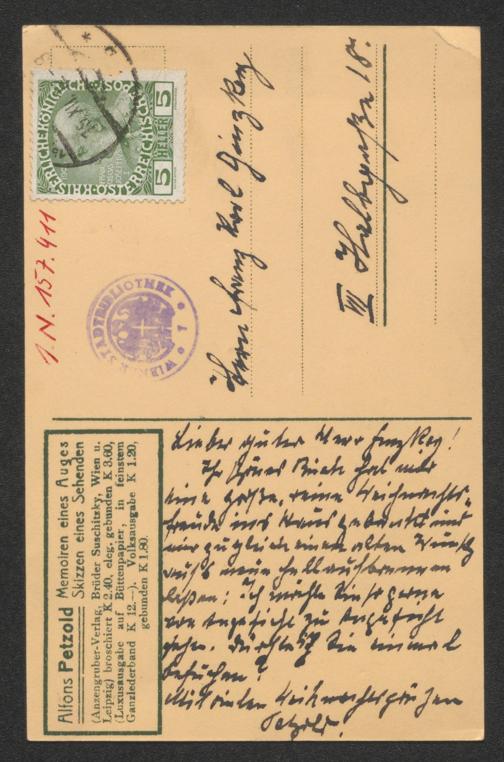 Alfons Petzold Memoiren eines Auges
Skizzen eines Sehenden
(Anzengruber-Verlag, Brüder Suschitzky, Wien u.
Leipzig) broschiert K 2.40, eleg. gebunden K 3.60,
(Luxusausgabe auf Büttenpapier, in feinstem
Ganzlederband K 12.—). Volksausgabe K 1.20,
gebunden K 1.80.
Lieber guter Herr Ginzkey!
Ihr schönes Buch hat mir
eine große, reine Weihnachts-
freude ins Haus gebracht und
mir zugleich einen alten Wunsch
aufs neue hell aufbrennen
lassen: Ich möchte Sie so gerne
von Angesicht zu Angesicht
sehen. Dürfte ich Sie einmal
besuchen?
Mit vielen Weihnachtsgrüßen
Petzold.
KAISERLICHE KÖNIGLICHE ÖSTERREICHISCHE POST
5 HELLER 5
I. N. 157.411
WIENER STADTBIBLIOTHEK
Herrn Franz Karl Ginzkey
III Halbgasse 18.